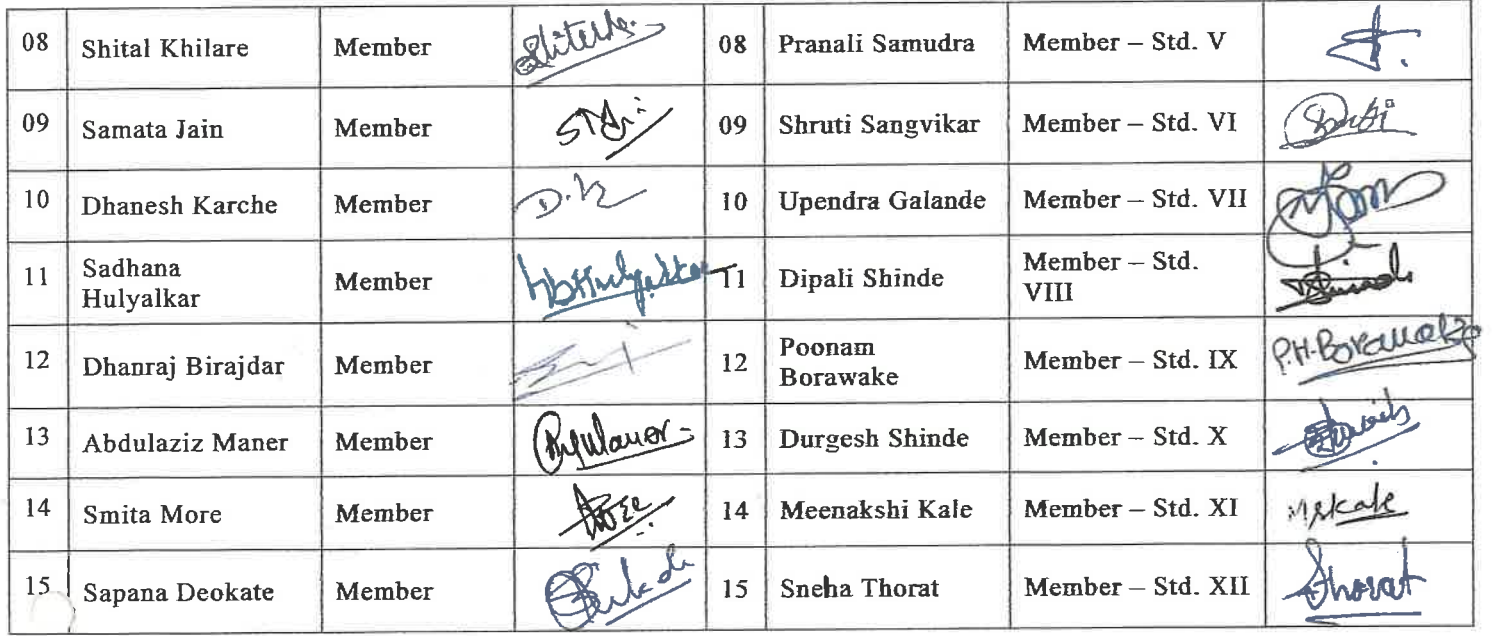 08 Shital Khilare Member 08 Pranali Samudra Member – Std. V
09 Samata Jain Member 09 Shruti Sangvikar Member – Std. VI
10 Dhanesh Karche Member D.K 10 Upendra Galande Member – Std. VII
11 Sadhana Hulyalkar Member 11 Dipali Shinde Member – Std. VIII
12 Dhanraj Birajdar Member 12 Poonam Borawake Member – Std. IX P.H.Borawake
13 Abdulaziz Maner Member 13 Durgesh Shinde Member – Std. X
14 Smita More Member 14 Meenakshi Kale Member – Std. XI
15 Sapana Deokate Member 15 Sneha Thorat Member – Std. XII Thorat